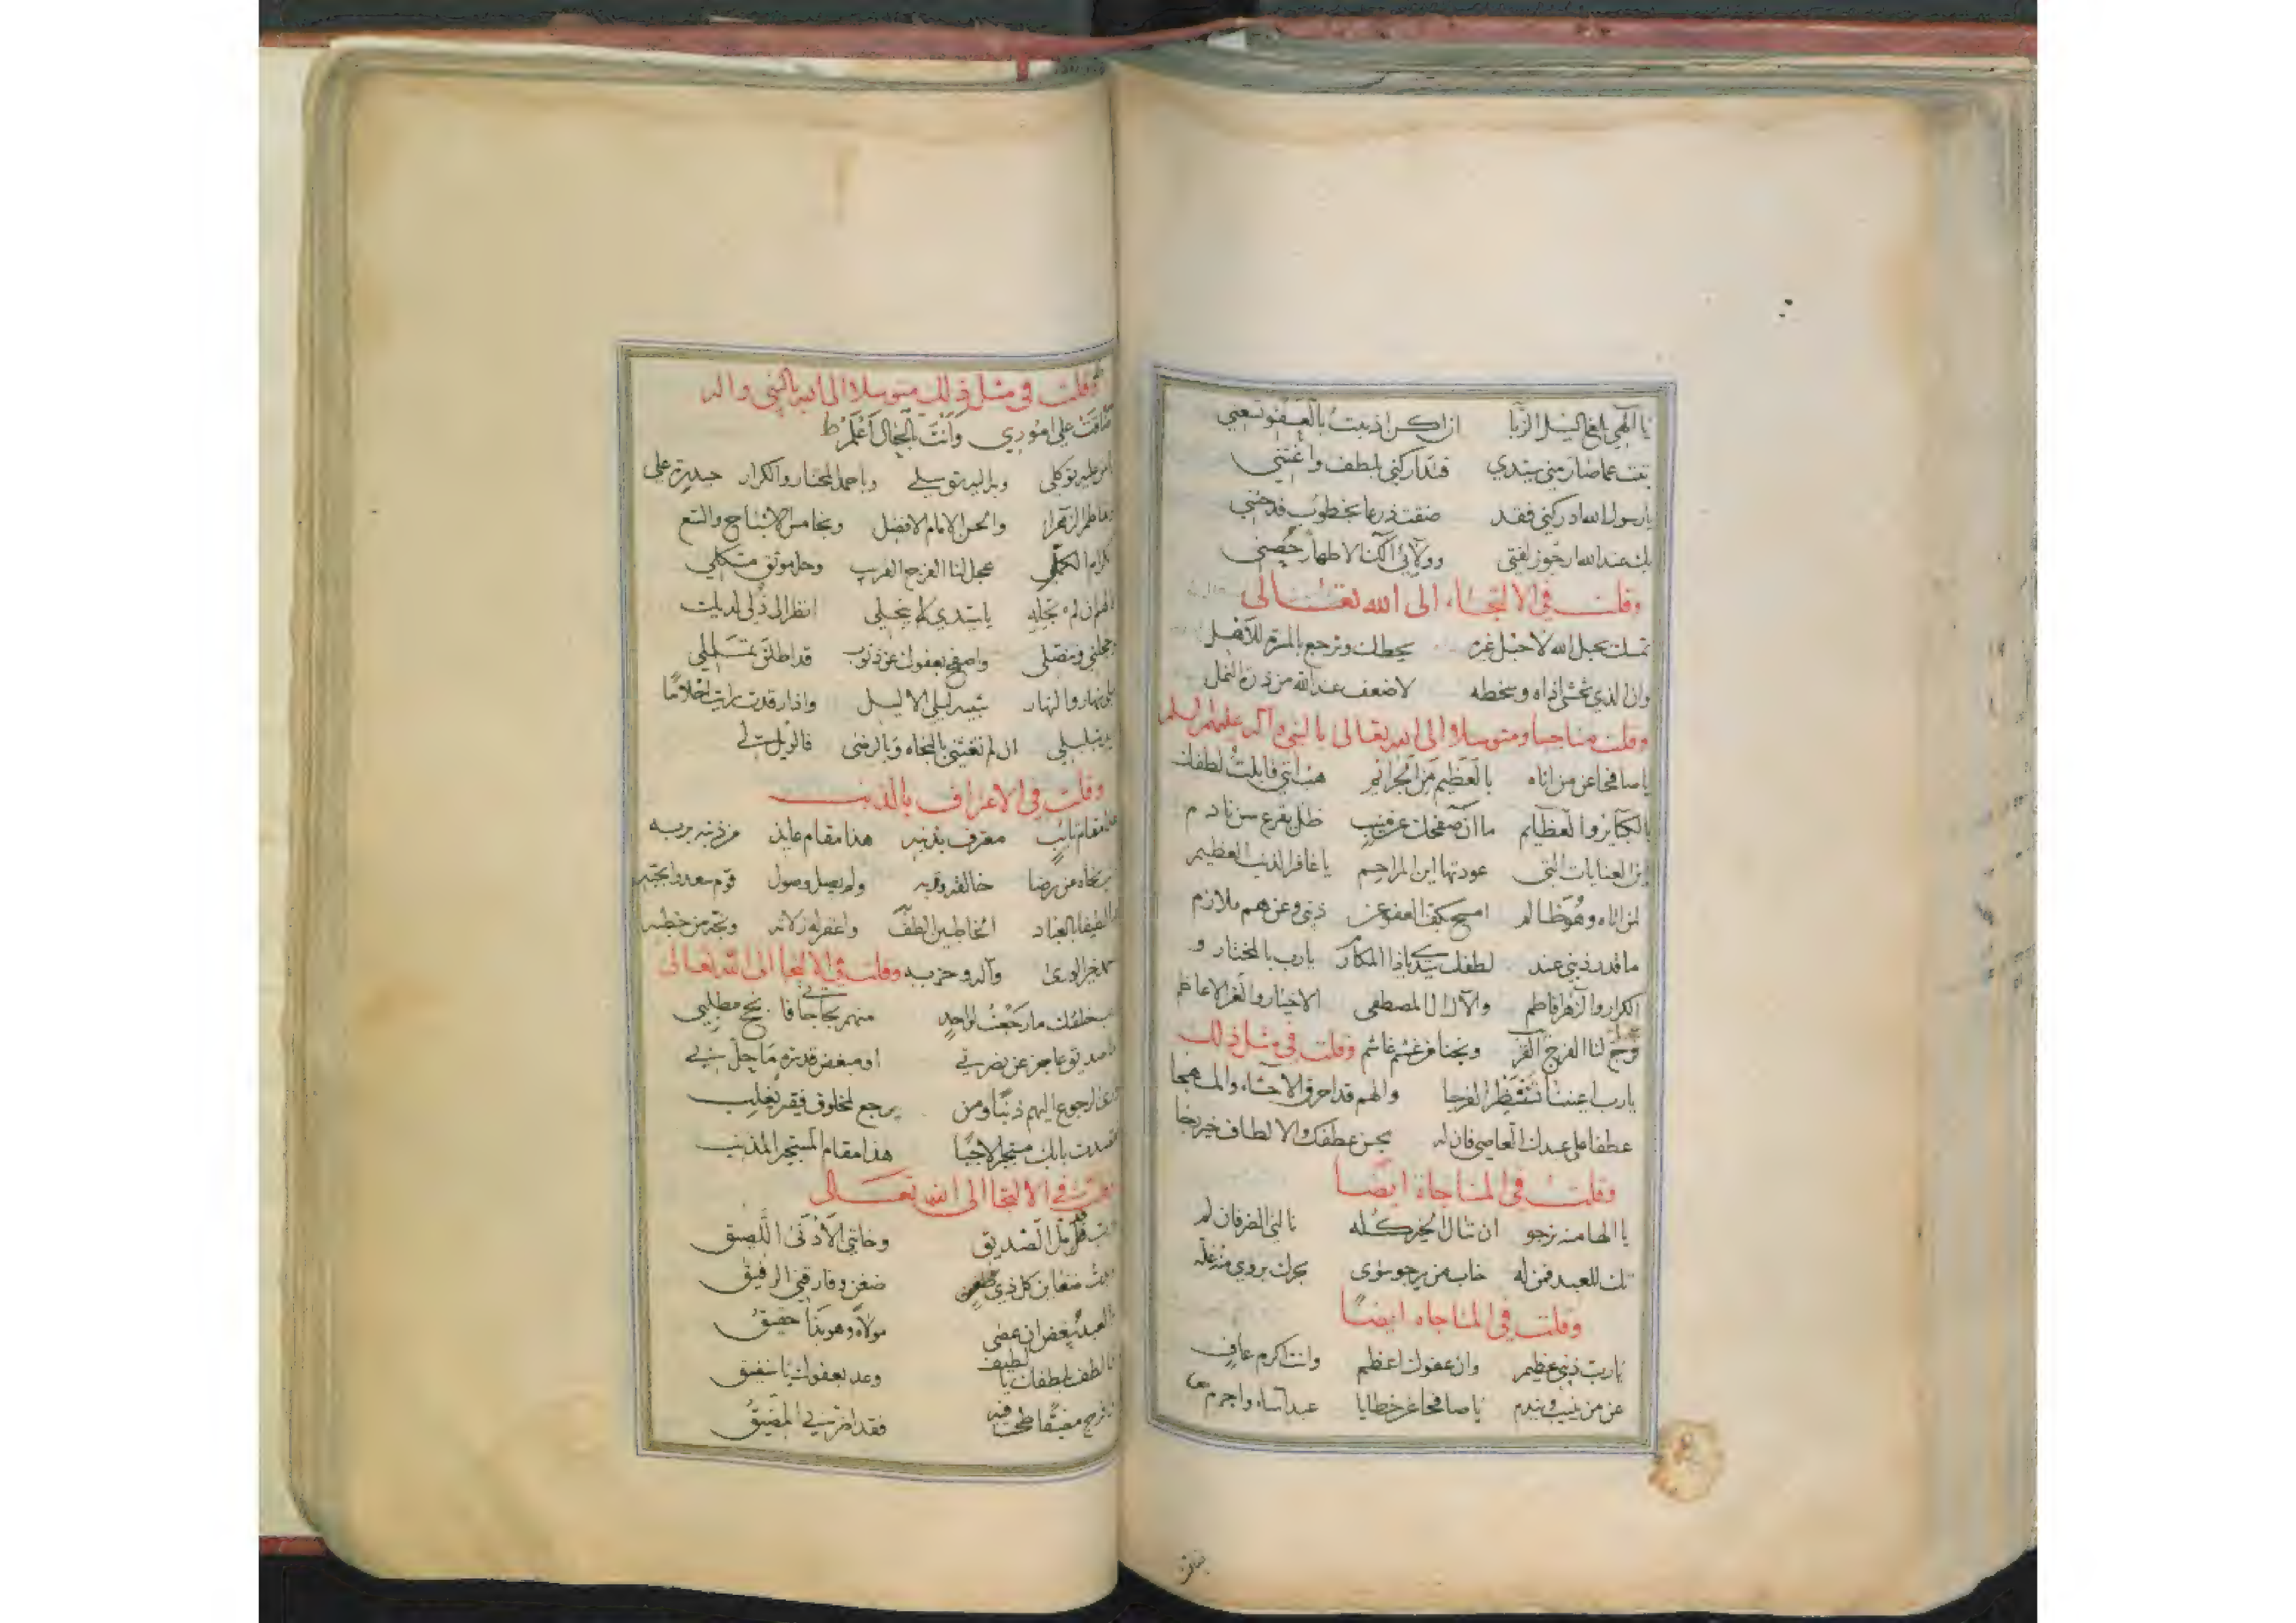 يا الهي بلغ السيل الزبا ان اكن اذنبت بالعفو تعني
تبت عما صار مني سيدي فتداركني بلطف واغثني
يا رسول الله ادركني فقد ضقت ذرعا بخطوب قدحني
بك عند الله ارجو زلفتي وولائي الك الاطهار حصني
وقلت في الالتجاء الى الله تعالى
تمسك بحبل الله لا حبل غيره يحطك وترجع
وان الذي تخشى اذاه وسخطه لا ضعف عند الله من ذرة النمل
وقلت مناجيا ومتوسلا الى الله تعالى بالنبي وآله عليهم السلم
يا صافحا عن من اتاه بالعظيم من الجرائم هب انني قابلت لطفك
بالكبائر والعظايم ما آن صفحك عن مذنب ظل يقرع سن نادم
اين العنايات التي عودتها اين المراحم يا غافر الذنب العظيم
لمن اتاه وهو ظالم امسح بكف العفو عن ذنبي وعن هم ملازم
ما قدر ذنبي عند لطفك سيدي ياذا المكارم يا رب بالمختار و
الكرار والزهرا فاطم والآل ال المصطفى الاخيار والغر الاعاظم
عجل لنا الفرج القريب ونجنا من غشم غاشم وقلت في مثل ذلك
يا رب اعيننا تنتظر الفرجا والهم قد احرق الاحشاء والمهجا
عطفا على عبدك العاصي فان له بحسن عطفك والالطاف خير رجا
وقلت في المناجاة ايضا
يا الها منه نرجو ان ننال الخير كله نالني الضر فان لم
تك للعبد فمن له خاب من يرجو سوى بحرك يروي منه غله
وقلت في المناجاه ايضا
يا رب ذنبي عظيم وان عفوك اعظم وانت اكرم عاف
عن من ينيب ويندم يا صافحا عن خطايا عبد اساء واجرم
ضاقت
وقلت في مثل ذلك متوسلا الى الله بالنبي واله
ضاقت علي اموري وانت بالحال اعلم
من عليه توكلي وبه اليه توسلي وباحمد المختار والكرار حيدرة علي
وفاطم الزهرا والحسن الامام الافضل وبخامس الاشباح والتسع
الكرام الكمل عجل لنا الفرج القريب وحل موثق مشكلي
الهم ان لم تجله يا سيدي لا ينجلي انظر الى ذلي لديك
وخجلتي وتنصلي واصفح بعفوك عن ذنوب قد اطلن تململي
واذا رقدت رايت احلاما
ان لم تغثني بالنجاه وبالرضى فالويل لي
وقلت في الاعتراف بالذنب
هذا مقام تائب معترف بذنبه هذا مقام عايذ من ذنبه بربه
خالقه وقربه ولم يصل وصول قوم سعدوا بحبه
يا لطيفا بالعباد الخاطين الطف واغفر له زلاته ونجه من خطبه
خير الورى وآله وحزبه وقلت في الالتجا الى الله تعالى
بخلقك ما رجعت لواحد منهم بحاجاتي فانجح مطلبي
صديق عاجز عن نصرتي او مبغض قد سره ما حل بي
الرجوع اليهم ذنبا ومن يرجع لمخلوق فقير تغلب
قصدت بابك مستجيرا لاجيا هذا مقام المستجير المذنب
وقلت في الالتجا الى الله تعالى
رب قل بل الصديق وخانني الادنى اللصيق
كل ذي ضغن وفارقني الرفيق
العبد يبغض ان عصى مولاه وهو بذا حقيق
فالطف بلطفك يا لطيف وعد بعفوك يا شفيق
فقد اضر بي المضيق